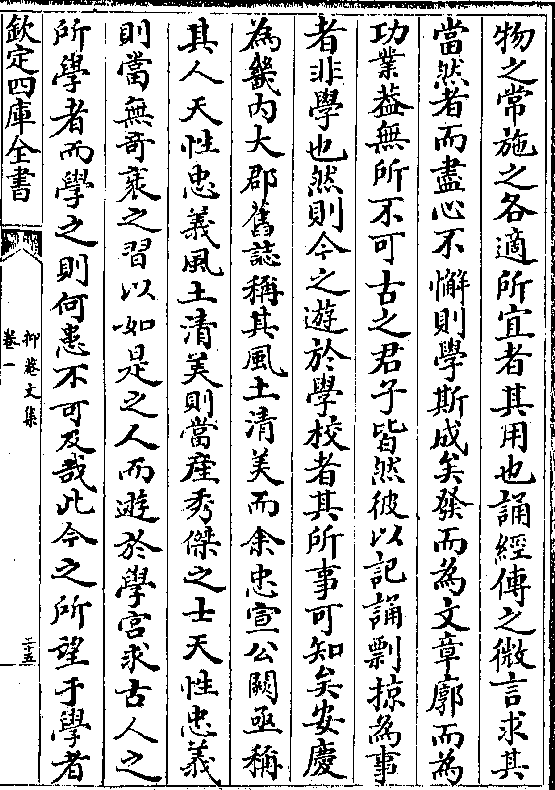 物之常施之各適所宜者其用也誦經傳之微言求其
當然者而盡心不懈則學斯成矣發而為文章廓而為
功業蓋無所不可古之君子皆然彼以記誦剽掠為事
者非學也然則今之遊於學校者其所事可知矣安慶
為畿内大郡舊誌稱其風土清美而余忠宣公闕亟稱
其人天性忠義風土清美則當産秀傑之士天性忠義
則當無竒袤之習以如是之人而遊於學宫求古人之
所學者而學之則何患不可及哉此今之所望于學者
欽定四庫全書
抑菴文集
卷一
二十五